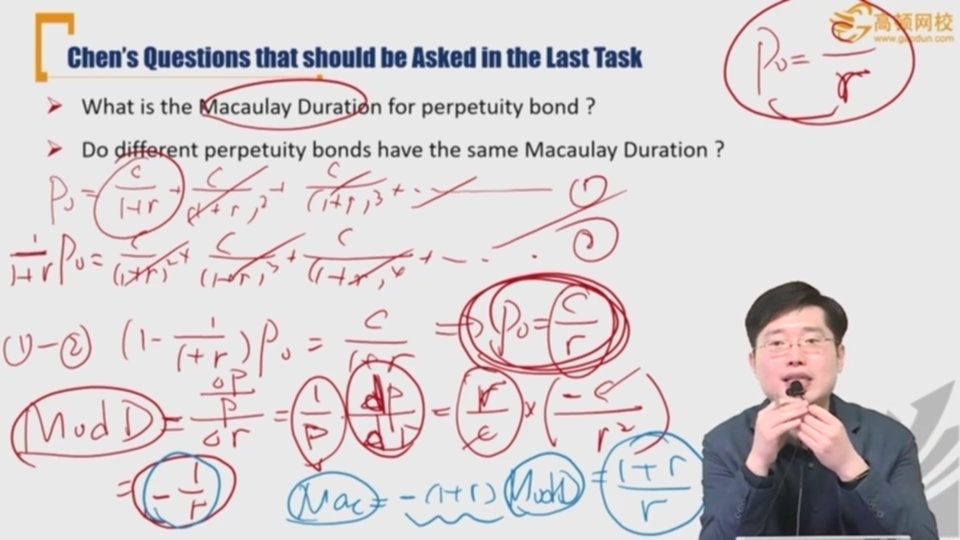 高顿网校
www.gaodun.com
Chen's Questions that should be Asked in the Last Task
P₀ = C/r
➤ What is the Macaulay Duration for perpetuity bond ?
➤ Do different perpetuity bonds have the same Macaulay Duration ?
P₀ = C/(1+r) + C/(1+r)² + C/(1+r)³ + ... ①
1/(1+r) P₀ = C/(1+r)² + C/(1+r)³ + C/(1+r)⁴ + ... ②
①-② (1 - 1/(1+r)) P₀ = C/(1+r) ⇒ P₀ = C/r
Mod D = ΔP/P/Δr = (1/P)(dP/dr) = (r/C) × (-C/r²)
= -1/r
Mac = -(1+r) ModD = (1+r)/r